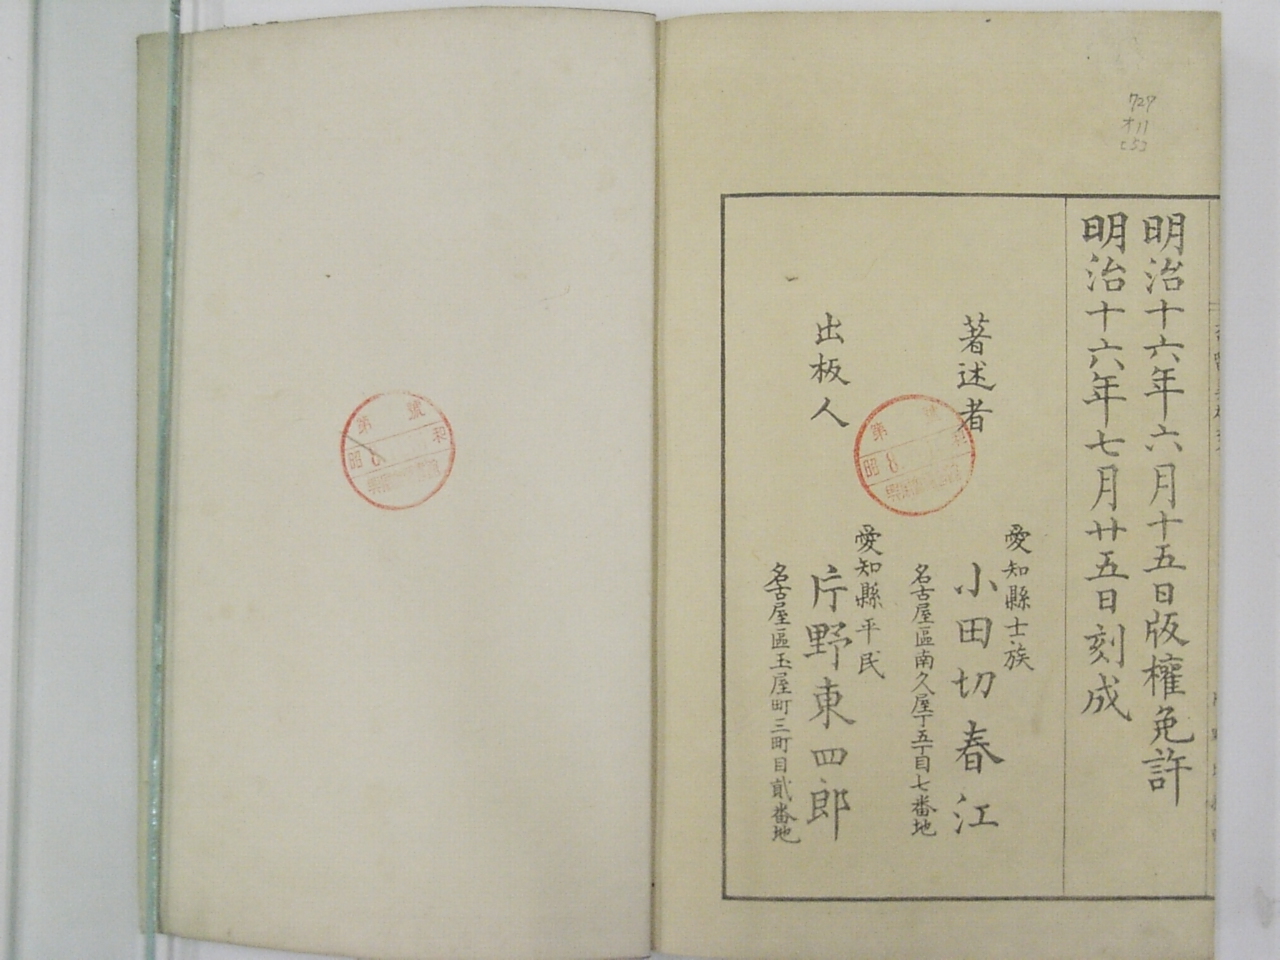 明治十六年六月十五日版權免許
明治十六年七月廿五日刻成
著述者
愛知縣士族
小田切春江
名古屋區南久屋丁五丁目七番地
出板人
愛知縣平民
片野東四郎
名古屋區玉屋町三町目貳番地
727
オ11
第 號
昭 8
第 號
昭 8